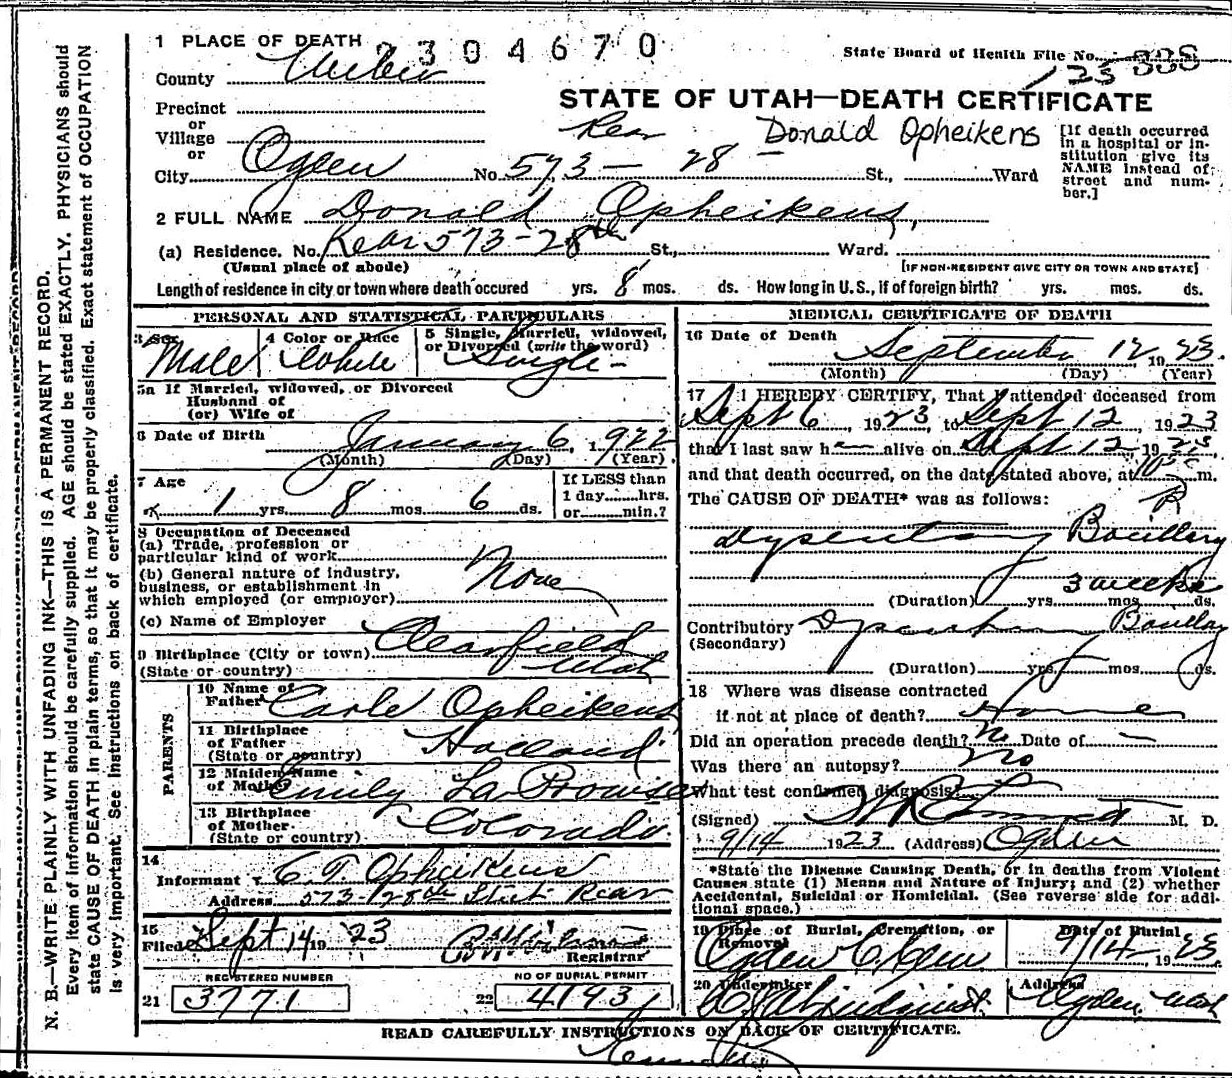 N. B.—WRITE PLAINLY WITH UNFADING INK—THIS IS A PERMANENT RECORD.
Every item of information should be carefully supplied. AGE should be stated EXACTLY. PHYSICIANS should
state CAUSE OF DEATH in plain terms, so that it may be properly classified. Exact statement of OCCUPATION
is very important. See instructions on back of certificate.
1 PLACE OF DEATH 2304670
State Board of Health File No.
County Weber
STATE OF UTAH—DEATH CERTIFICATE
Precinct
or
Village
or
Rear Donald Opheikens
City Ogden No. 573 - 28 St., Ward
[If death occurred
in a hospital or in-
stitution give its
NAME instead of
street and num-
ber.]
2 FULL NAME Donald Opheikens,
(a) Residence. No. Rear 573-28th St., Ward.
(Usual place of abode) [IF NON-RESIDENT GIVE CITY OR TOWN AND STATE]
Length of residence in city or town where death occured yrs. 8 mos. ds. How long in U.S., if of foreign birth? yrs. mos. ds.
PERSONAL AND STATISTICAL PARTICULARS
3 Sex Male
4 Color or Race White
5 Single, Married, widowed,
or Divorced (write the word) Single -
5a If Married, widowed, or Divorced
Husband of
(or) Wife of
6 Date of Birth January 6, 1922
(Month) (Day) (Year)
7 Age 1 yrs. 8 mos. 6 ds.
If LESS than
1 day......hrs.
or......min.?
8 Occupation of Deceased
(a) Trade, profession or
particular kind of work
(b) General nature of industry, None
business, or establishment in
which employed (or employer)
(c) Name of Employer
9 Birthplace (City or town) Clearfield
(State or country) Utah
PARENTS
10 Name of
Father Carle Opheikens
11 Birthplace
of Father Holland
(State or country)
12 Maiden Name
of Mother Emily La Prowse
13 Birthplace
of Mother Colorado
(State or country)
14
Informant C. T. Opheikens
Address 573-28th Street Rear
15
Filed Sept 14 19 23
Registrar
REGISTERED NUMBER
21 3771
NO OF BURIAL PERMIT
22 4193
MEDICAL CERTIFICATE OF DEATH
16 Date of Death
September 12 1923.
(Month) (Day) (Year)
17 I HEREBY CERTIFY, That I attended deceased from
Sept 6, 1923, to Sept 12, 1923
that I last saw h alive on Sept 12, 1923
and that death occurred, on the date stated above, at m.
The CAUSE OF DEATH* was as follows:
Dysentary Bacillary
3 weeks
(Duration) yrs. mos. ds.
Contributory Dysentary Bacillary
(Secondary)
(Duration) yrs. mos. ds.
18 Where was disease contracted
if not at place of death? Home
Did an operation precede death? No Date of —
Was there an autopsy? No
What test confirmed diagnosis?
(Signed) M. D.
9/14 1923 (Address) Ogden
*State the Disease Causing Death, or in deaths from Violent
Causes state (1) Means and Nature of Injury; and (2) whether
Accidental, Suicidal or Homicidal. (See reverse side for addi-
tional space.)
19 Place of Burial, Cremation, or
Removal Ogden Cem
Date of Burial
9/14 1923.
20 Undertaker
Address
Ogden, Utah
READ CAREFULLY INSTRUCTIONS ON BACK OF CERTIFICATE.